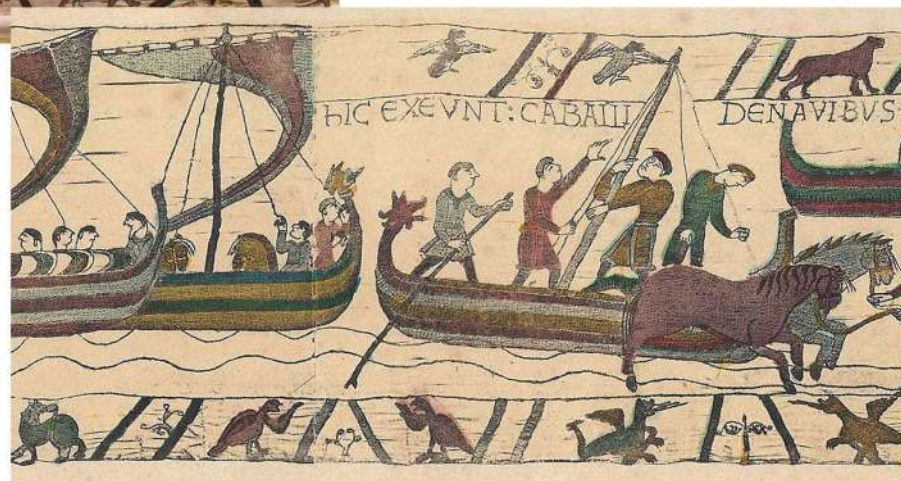 hIC EXEVNT: CABALLI DENAVIBUS